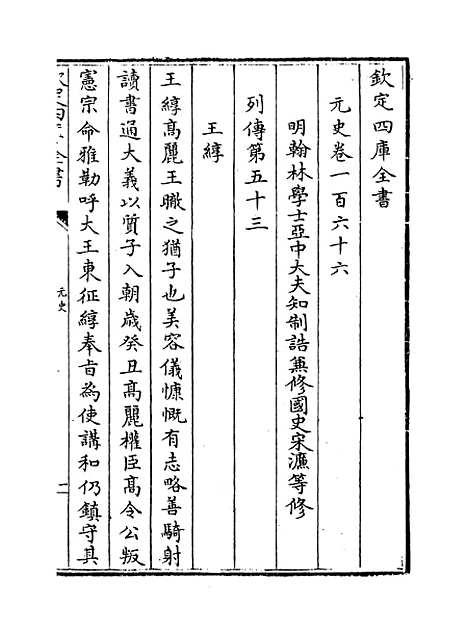 欽定四庫全書
元史卷一百六十六
明翰林學士亞中大夫知制誥兼修國史宋濂等修
列傳第五十三
王綧
王綧髙麗王瞮之猶子也美容儀慷慨有志略善騎射
讀書通大義以質子入朝歲癸丑髙麗權臣髙令公叛
憲宗命雅勒呼大王東征綧奉旨為使講和仍鎮守其
欽定四庫全書
元史